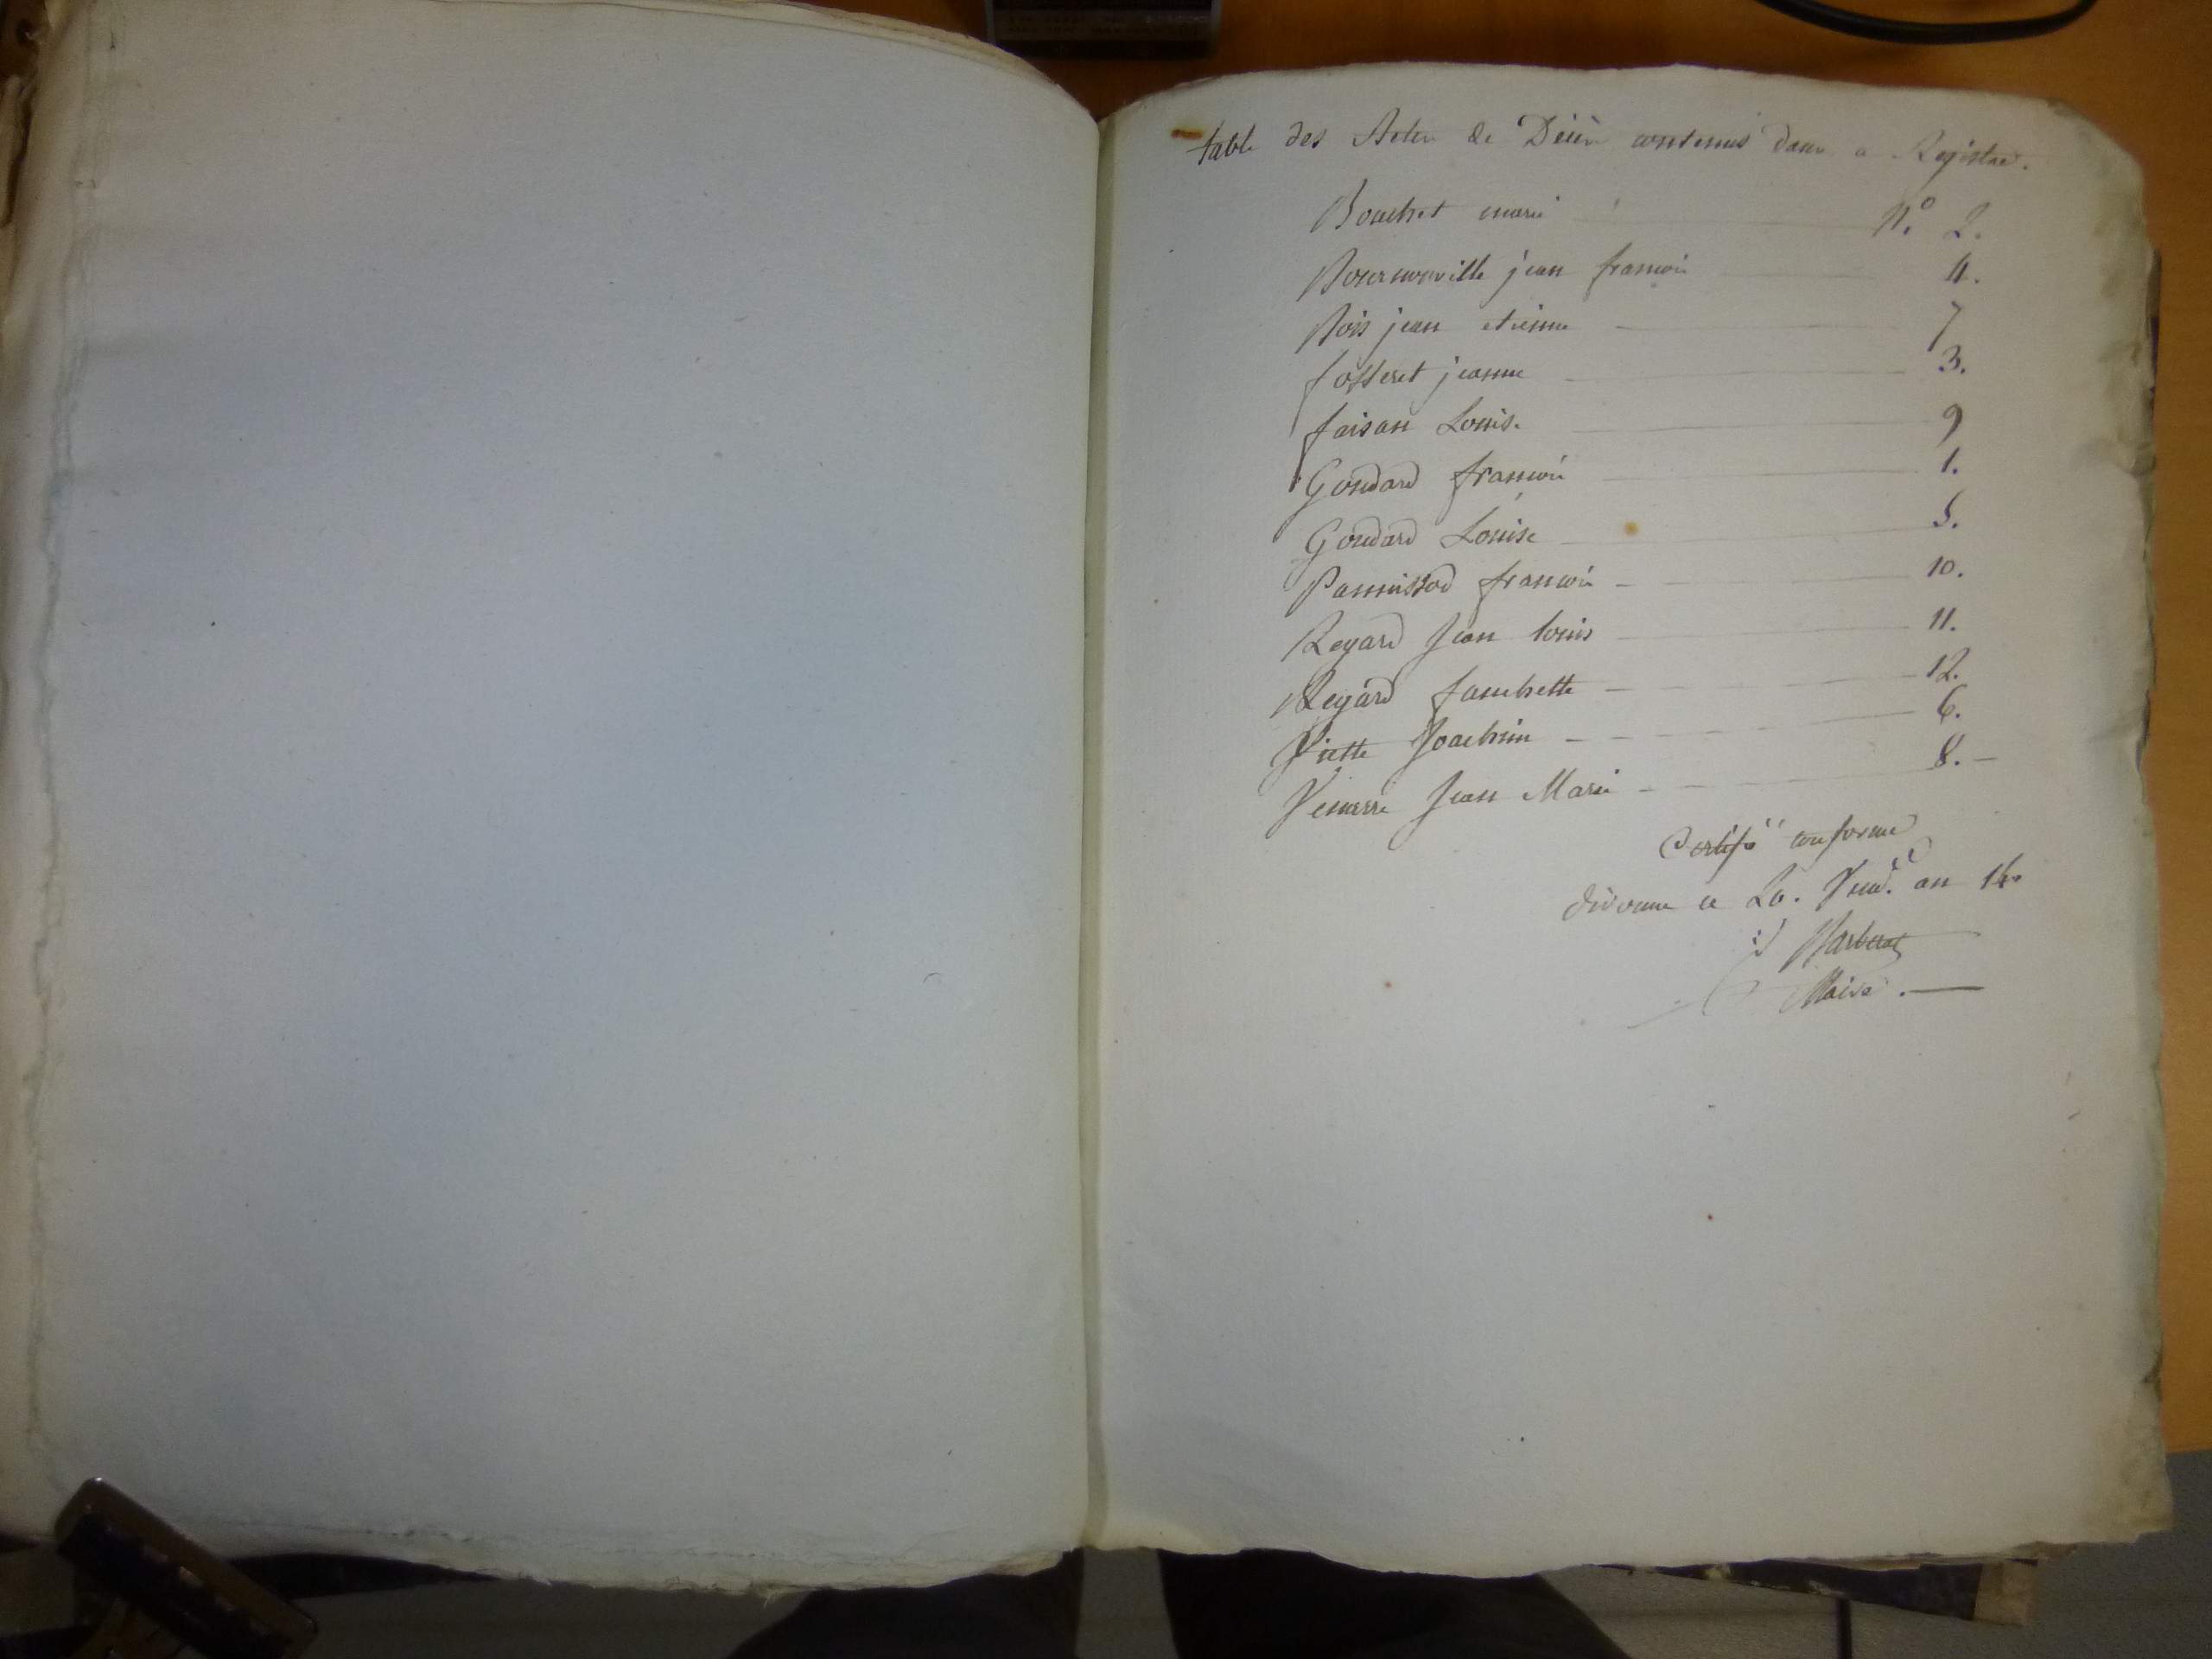 table des Actes de Décès contenus dans ce Registre.
Bouchet marie N.° 2.
Bournonville jean francois 4.
Bois jean etienne 7
fosseret jeanne 3.
faisan Louise 9
Goudard francois 1.
Goudard Louise 5.
Pannissod francois 10.
Regard Jean louis 11.
Regard fanchette 12.
Viette Joachim 6.
Venarre Jean Marie 8.
Certifié conforme
divonne ce 20. Vend. an 14.
Maire.